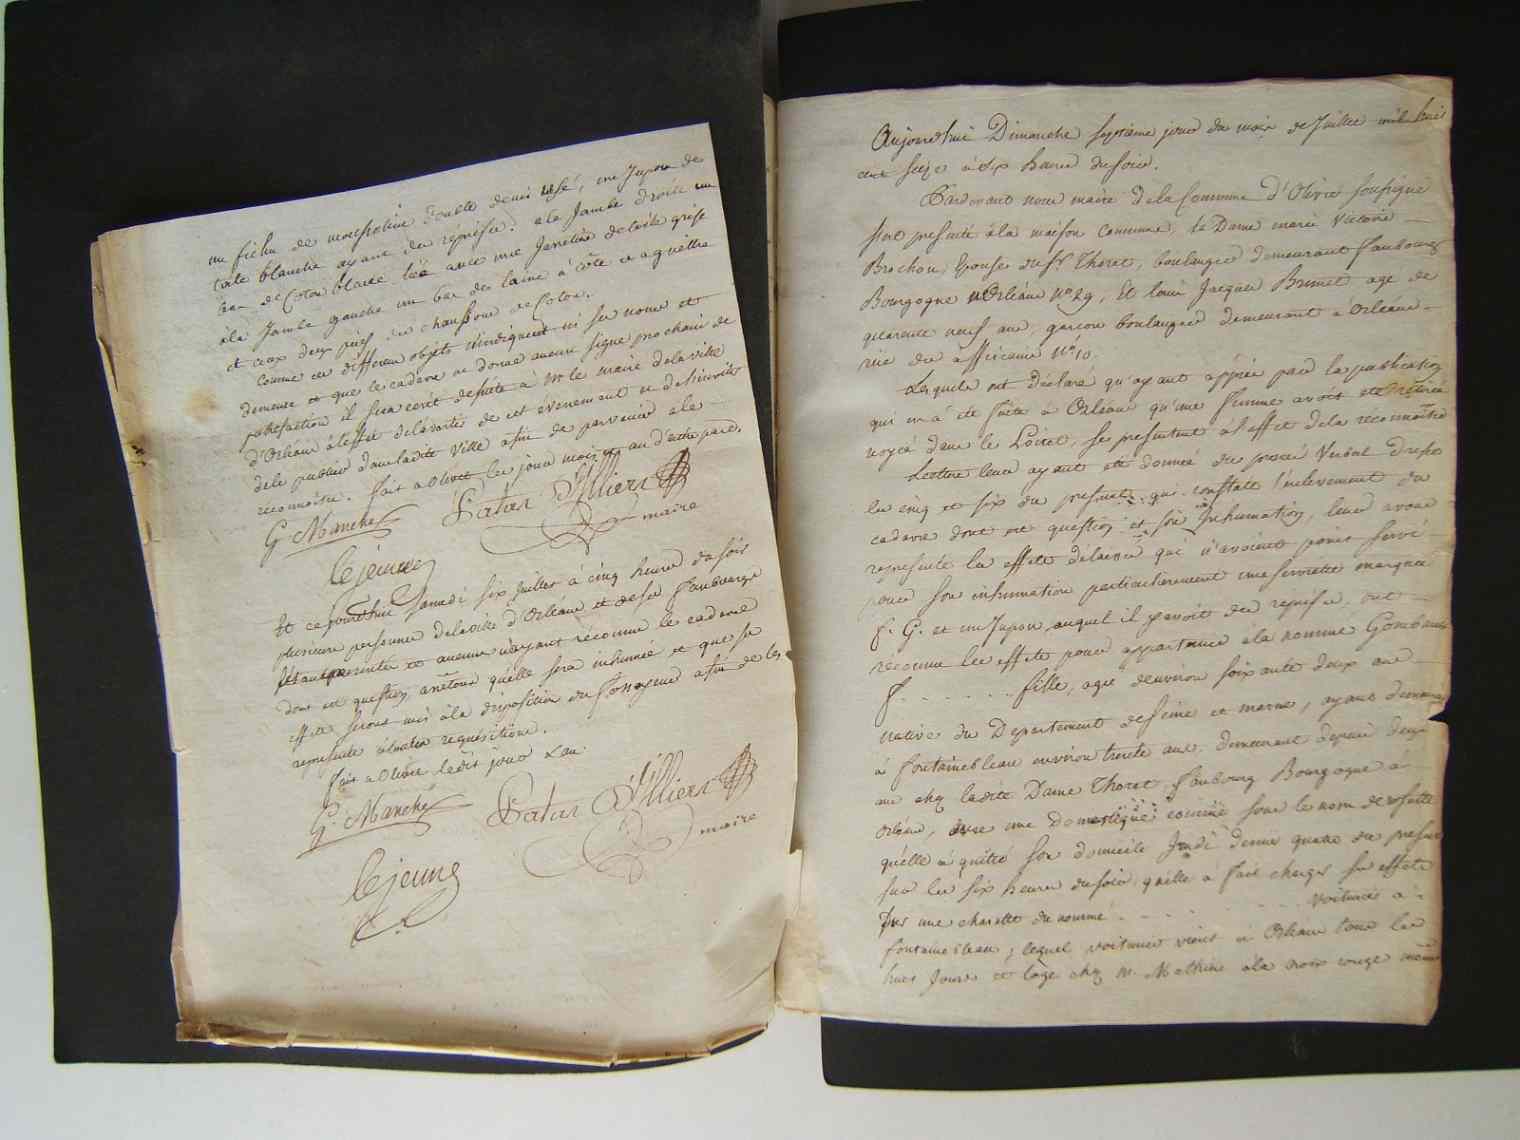 un fichu de mousseline double demi usé, un Jupon de
toile blanche ayant des reprises. a la Jambe droite un
bas de Coton blanc lié avec une Jarretière de toile grise
à la Jambe gauche un bas de laine à côte
et ceux deux pieds des chaussons de Coton.
Comme ces différens objets n'indiquent ni ses noms et
demeure et que le cadavre ne donne aucun signe prochain de
putréfaction il sera écrit de suite à Mr le maire de la ville
d'Orléans à l'effet de l'avertir de cet événement et de l'inviter
de le publier dans ladite Ville afin de parvenir à le
reconnoitre. fait a Olivet les jour mois et an d'autre part.
G. Manché Patas d'Illiers
maire
lejeune
Et cejourd'hui samedi six Juillet à cinq heures du soir
plusieurs personnes de la ville d'Orléans et de ses faubourgs
s'étant présentés et aucune n'ayant reconnu le cadavre
dont est question, arrêtons qu'elle sera inhumée et que ses
effets seront mis à la disposition du fossoyeur afin de les
représenter à toutes réquisitions.
fait a Olivet ledit jour & an
G. Manché Patas d'Illiers
maire
lejeune
Aujourd'hui Dimanche septième jour du mois de Juillet mil huit
cent seize à six heures du soir.
Pardevant nous maire de la Commune d'Olivet soussigné
sont présentés à la maison commune, la Dame marie Victoire
Brochon, Epouse du Sr. Thoret, boulanger demeurant faubourg
Bourgogne à Orléans No. 29, Et louis Jacques Brunet agé de
quarante neuf ans, garçon boulanger demeurant à Orléans
rue des affricains No. 10.
Lesquels ont déclaré qu'ayant appris par la publication
qui en a été faite à Orléans qu'une femme avoit été retirée
noyée dans le Loiret, se présentent à l'effet de la reconnoître
Lecture leur ayant été donnée du procès Verbal dressé
les cinq et six du présent, qui constate l'enlevement du
cadavre dont est question et son Inhumation, leur avons
représenté les effets délaissés qui n'avoient point servi
pour son inhumation particulièrement une serviette marquée
f. G. et un Jupon auquel il y avoit des reprises, ont
reconnu les effets pour appartenir à la nommée
f. . . . . . . . fille, agée d'environ soixante deux ans
native du Département de Seine et marne, ayant demeuré
à fontainebleau environ trente ans, demeurant depuis deux
ans chez ladite Dame Thoret, faubourg Bourgogne à
Orléans, une Domestique connue sous le nom de rosette
qu'elle a quitté son domicile Jeudi dernier quatre du présent
sur les six heures du soir, qu'elle a fait charger ses effets
sur une charette du nommé . . . . . . . . voiturier à
fontainebleau, lequel voiturier vient à Orléans tous les
huit jours et loge chez M. Mathieu à la croix rouge